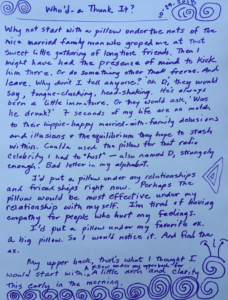 Who'd-a Thunk It?
Why not start with a pillow under the nuts of the
nice married family man who groped me at that
sweet little gathering of longtime friends. Then I
might have had the presence of mind to kick
him there. Or do something other than freeze. And
leave. Why don't I tell anyone? Oh D, they would
say, tongue-clucking, head-shaking. He's always
been a little immature. Or they would ask, "Was
he drunk?" 7 seconds of my life are no match
to their hippie-happy married-with-family delusions
and illusions + the equilibrium they hope to stash
within. Coulda used the pillow for that radio
celebrity I had to "host" — also named D, strangely
enough. Bad letter in my alphabet.
I'd put a pillow under my relationships
and friendships right now. Perhaps the
pillow would be most effective under my
relationship with myself. I'm tired of having
empathy for people who hurt my feelings.
I'd put a pillow under my favorite ex.
a big pillow. So I would notice it. And find the
ex.
My upper back, that's what I thought I
would start with. A little arch and clarity
this early in the morning.